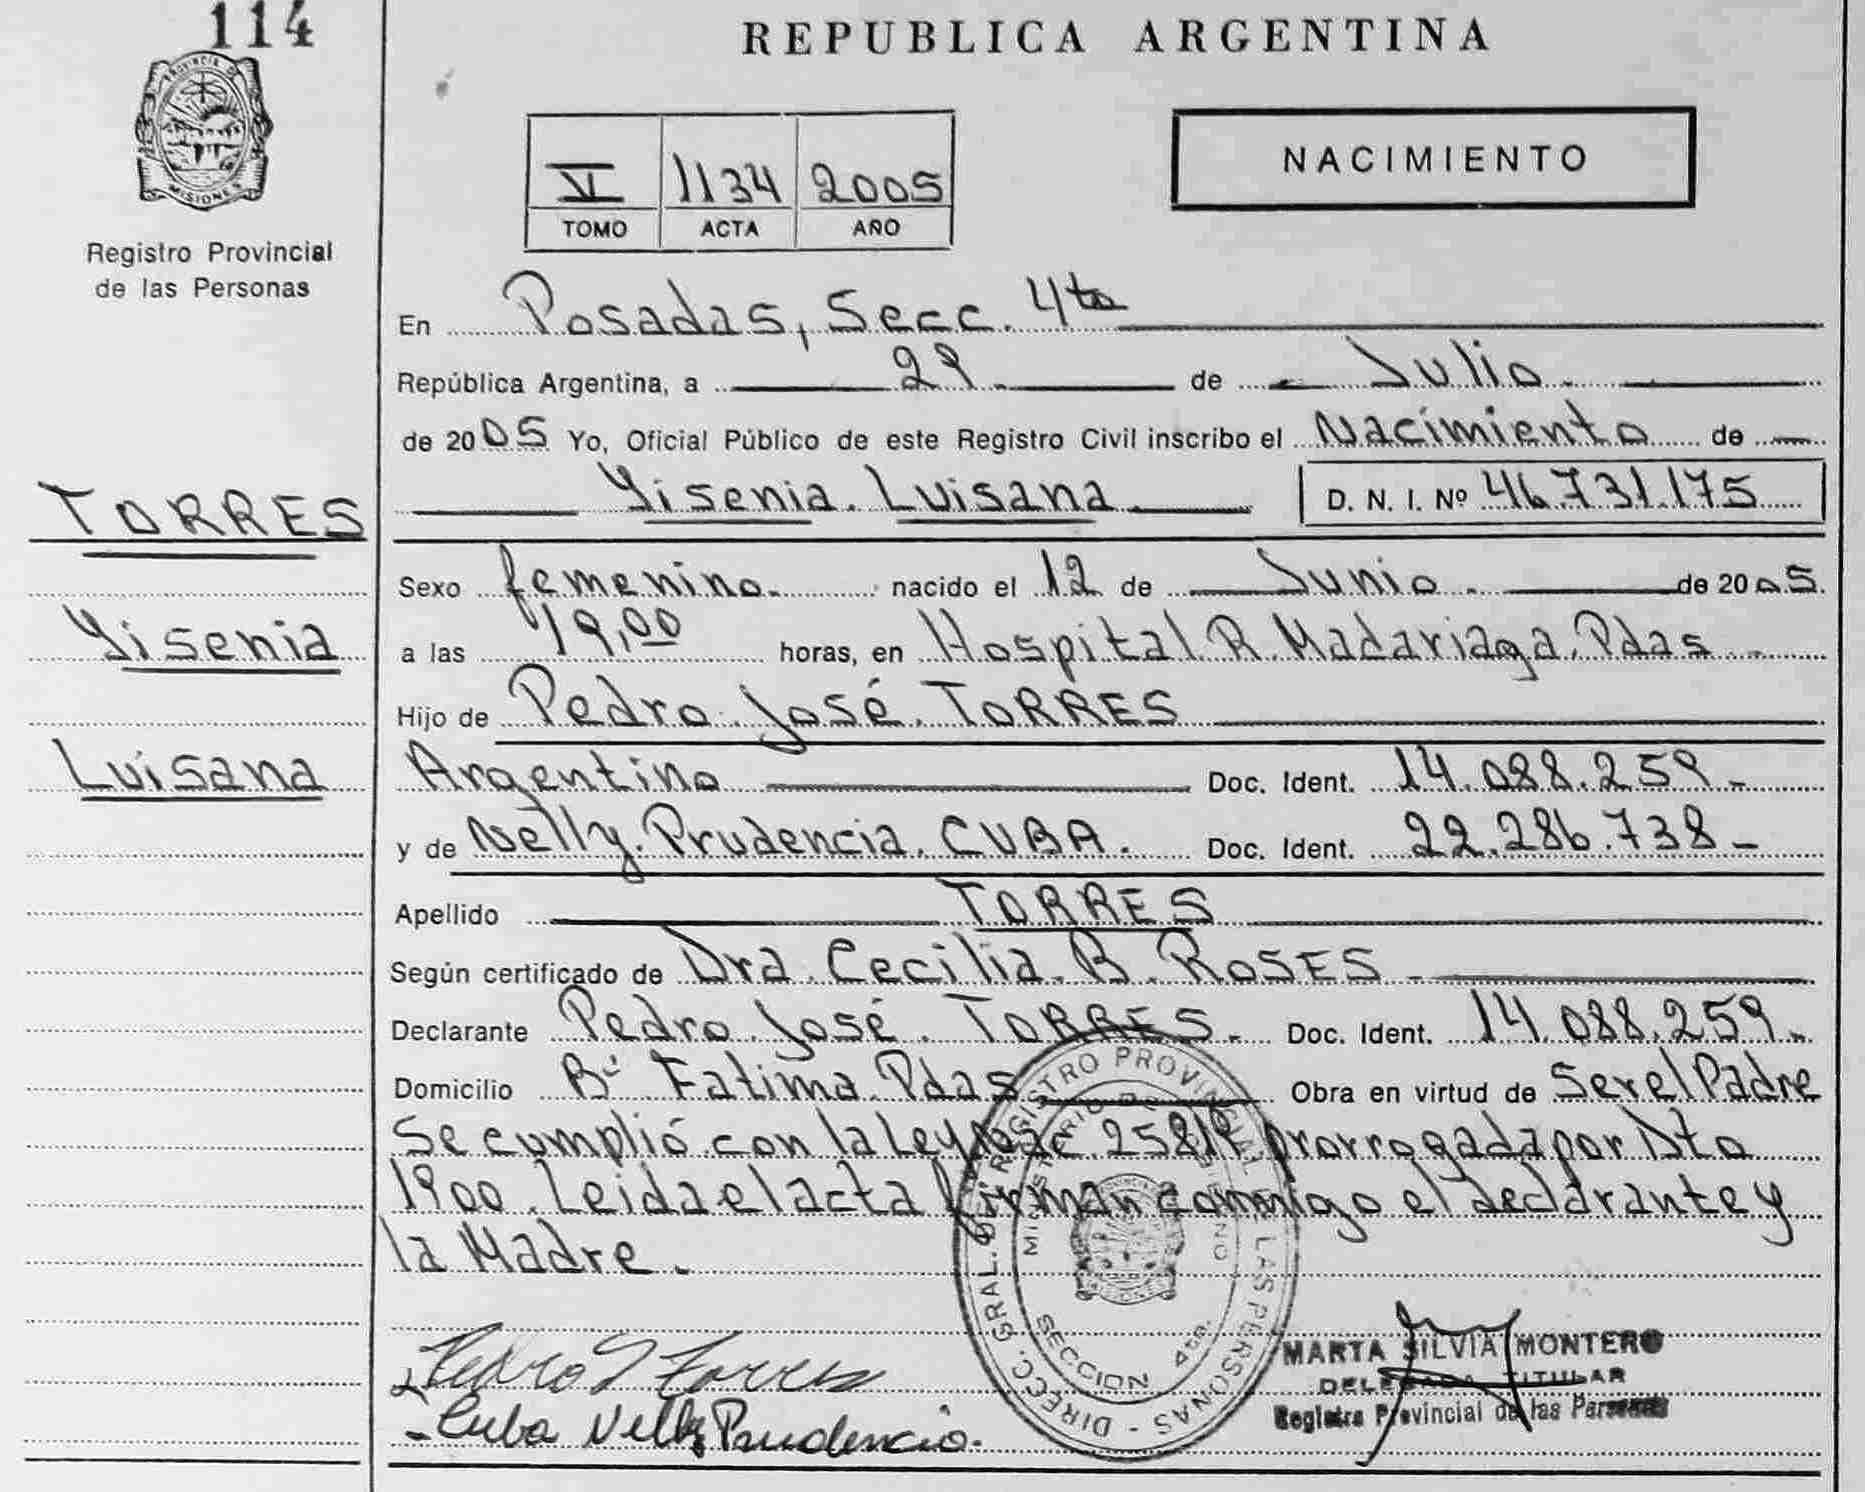 114
REPUBLICA ARGENTINA
PROVINCIA DE
MISIONES
Registro Provincial
de las Personas
VI 1134 2005
TOMO ACTA AÑO
NACIMIENTO
En Posadas, Secc. 4ta
República Argentina, a 29 de Julio
de 2005 Yo, Oficial Público de este Registro Civil inscribo el Nacimiento de
Yisenia Luisana D. N. I. Nº 46.731.175
TORRES
Yisenia
Luisana
Sexo femenino. nacido el 12 de Junio de 2005.
a las 19,00 horas, en Hospital R. Madariaga, Pdas
Hijo de Pedro José TORRES
Argentino Doc. Ident. 14.088.259.-
y de Nelly Prudencia CUBA. Doc. Ident. 22.286.738-
Apellido TORRES
Según certificado de Dra. Cecilia B. ROSES
Declarante Pedro José TORRES. Doc. Ident. 14.088.259.
Domicilio Bº Fatima Pdas Obra en virtud de Ser el Padre
Se cumplió con la Ley Nac. 25819 prorrogada por Dto
1900. Leida el acta firman conmigo el declarante y
la Madre.
Pedro J Torres
Cuba Nelly Prudencia.
DIRECC. GRAL. DE REGISTRO PROVINCIAL DE LAS PERSONAS
MINISTERIO DE GOBIERNO
SECCION 4ta.
MARTA SILVIA MONTERO
DELEGADA TITULAR
Registro Provincial de las Personas